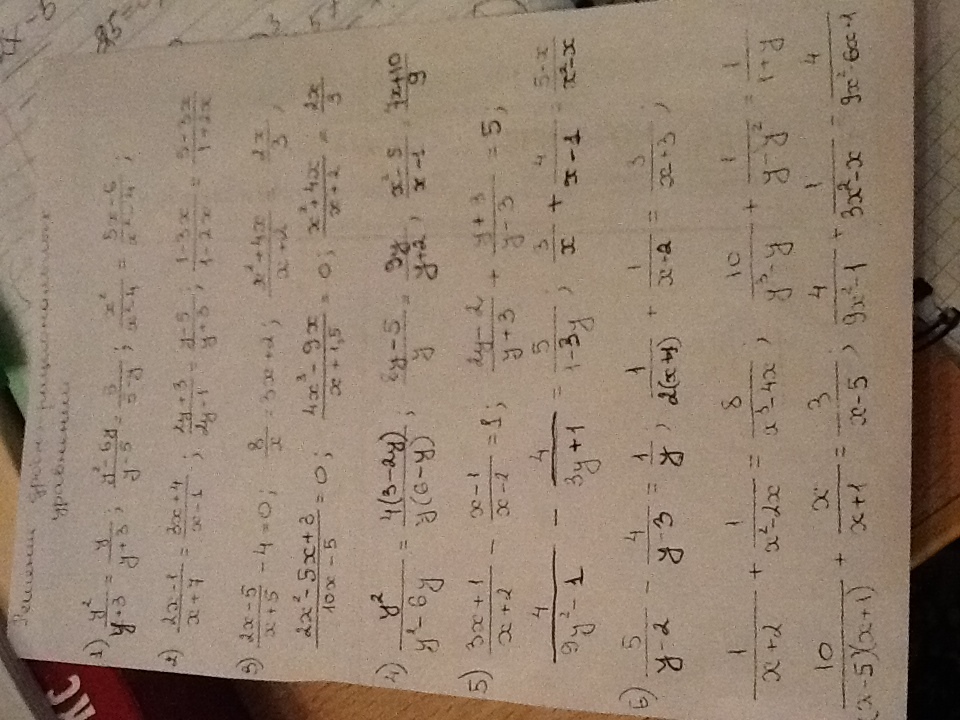 Решений дробн рациональных
уравнений
1) y²/(y+3) = y/(y+3); (y²-6y)/(y-5) = 5/(5-y); x²/(x²-4) = (5x-6)/(x²-4);
2) (2x-1)/(x+7) = (3x+4)/(x-1); (2y+3)/(2y-1) = (y-5)/(y+3); (1-3x)/(1-2x) = (5-3x)/(1+2x)
3) (2x-5)/(x+5) - 4 = 0; 8/x = 3x+2; (x²+4x)/(x+2) = 2x/3;
(2x²-5x+3)/(10x-5) = 0; (4x³-9x)/(x+1,5) = 0; (x²+4x)/(x+2) = 2x/3
4) y²/(y²-6y) = 4(3-2y)/(y(6-y)); (8y-5)/y = 9y/(y+2); (x²-3)/(x-1) (7x+10)/9
5) (3x+1)/(x+2) - (x-1)/(x-2) = 1; (2y-2)/(y+3) + (y+3)/(y-3) = 5;
4/(9y²-1) - 4/(3y+1) = 5/(1-3y); 3/x + 4/(x-1) = (5-x)/(x²-x)
6) 5/(y-2) - 4/(y-3) = 1/y; 1/(2(x+1)) + 1/(x-2) = 3/(x+3);
1/(x+2) + 1/(x²-2x) = 8/(x³-4x); 10/(y³-y) + 1/(y-y²) = 1/(1+y)
10/((x-5)(x+1)) + x/(x+1) = 3/(x-5); 4/(9x²-1) + 1/(3x²-x) = 4/(9x²-6x+1)
ЖС